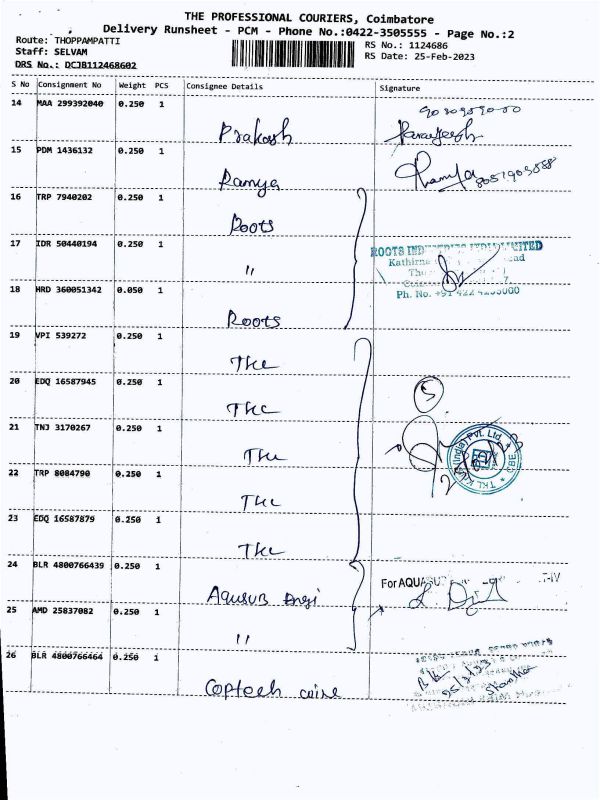 THE PROFESSIONAL COURIERS, Coimbatore
Delivery Runsheet - PCM - Phone No.:0422-3505555 - Page No.:2
Route: THOPPAMPATTI
Staff: SELVAM
DRS No.: DCJB112468602
RS No.: 1124686
RS Date: 25-Feb-2023
S No Consignment No Weight PCS Consignee Details Signature
14 MAA 299392040 0.250 1 Prakash
15 PDM 1436132 0.250 1 Ramya
16 TRP 7940202 0.250 1 Roots
17 IDR 50440194 0.250 1 "
ROOTS INDUSTRIES INDIA LIMITED
Ph. No. +91 422
18 HRD 360051342 0.050 1 Roots
19 VPI 539272 0.250 1 TKL
20 EDQ 16587945 0.250 1 TKL
5
21 TNJ 3170267 0.250 1 TKL
(India) Pvt. Ltd. * CBE * TKL
22 TRP 8084790 0.250 1 TKL
23 EDQ 16587879 0.250 1 TKL
24 BLR 4800766439 0.250 1 Aqusub Engi
For AQUASUB -IV
25 AMD 25837082 0.250 1 "
26 BLR 4800766464 0.250 1 Coptech wire
25/2/23